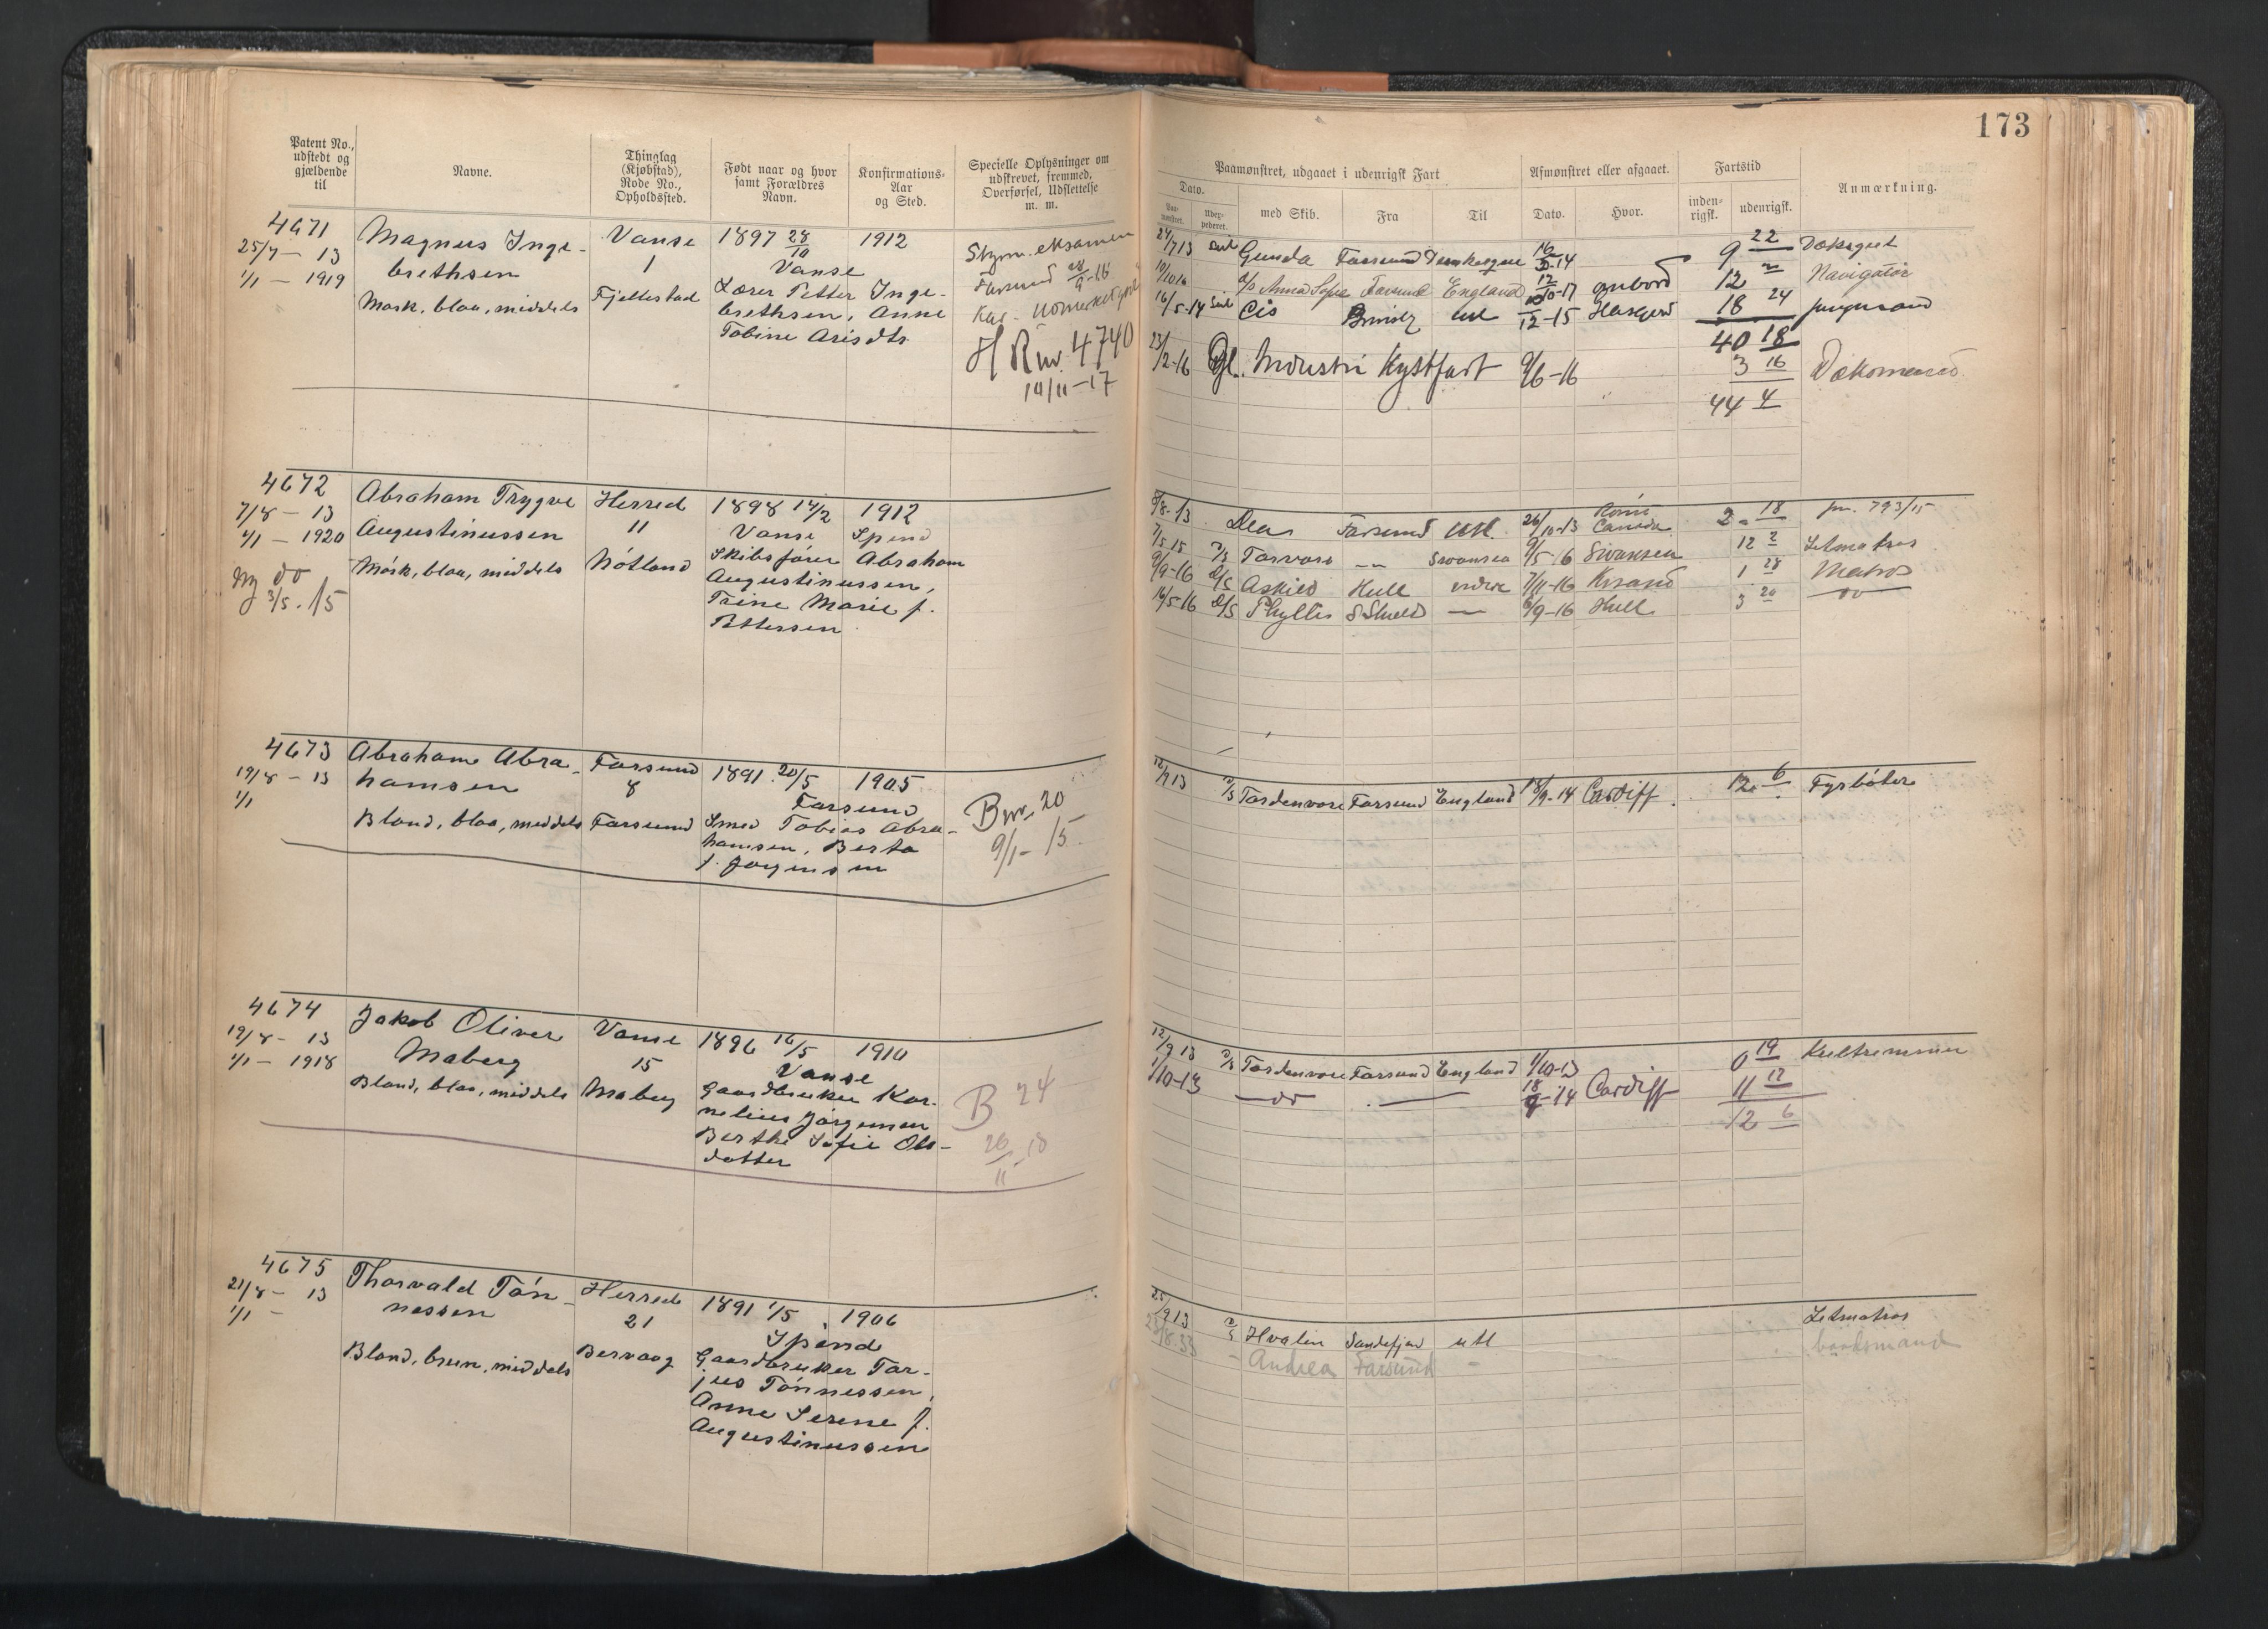 173
Patent No., udstedt og gjældende til
Navne.
Thinglag (Kjøbstad), Rode No., Opholdssted.
Født naar og hvor samt Forældres Navn.
Konfirmations-Aar og Sted.
Specielle Oplysninger om udskrevet, fremmed, Overførsel, Udslettelse m. m.
Paamønstret, udgaaet i udenrigsk Fart
Afmønstret eller afgaaet.
Fartstid
Anmærkning.
Dato.
med Skib.
Fra
Til
Dato.
Hvor.
inden-rigsk.
udenrigsk.
4671 Magnus Inge- Vanse 1897 28/10 1912 Styrm. eksamen
25/7 - 13 brethsen 1 Vanse Farsund
1/1 - 1919 Mørk, blaa, middels Fjellestad Lærer Petter Inge-
brethsen, Anne
Tobine Arisdtr
H Rnr. 4740
14/11-17
24/7 13 Seil Gunda Farsund 16/5-14 9 22 Dæksgut
Anna Sofie Farsund England 12/10-17 ombord 12 Navigatør
16/5-14 Seil Cis utl 12-15 18 24 jungmand
40 18
23/2-16 Industri Kystfart 9/6-16 3 16 Dæksmand
44 4
4672 Abraham Trygve Herred 1898 14/2 1912
7/8 - 13 Augustinussen 11 Vanse Spind
1/1 - 1920 Mørk, blaa, middels Nøtland Skibsfører Abraham
Ny do Augustinussen,
3/5 - 15 Trine Marie f.
Pettersen
8/8-13 Dea Farsund Utl. 26/10-13 Canada 2 18 jnr. 793/15
7/5 15 D/S Torvore -"- Swansea 9/5-16 Swansea 12 2 Letmatros
9/9-16 D/S Askild Hull 7/11-16 Krsand 1 28 Matros
16/5-16 D/S Phyllis S Shields — 8/9-16 Hull 3 20 do
4673 Abraham Abra- Farsund 1891 20/5 1905
19/8 - 13 hamsen 8 Farsund
1/1 Blond, blaa, middels Farsund Smed Tobias Abra-
hamsen, Berta
f. Jørgensen
Bnr. 20
9/1 - 15
12/9 13 D/S Tordenvore Farsund England 18/9-14 Cardiff 12 6 Fyrbøter
4674 Jakob Oliver Vanse 1896 16/5 1910
19/8 - 13 Maberg 15 Vanse
1/1 - 1918 Blond, blaa, middels Maberg Gaardbruker Kor-
nelius Jørgensen
Berthe Sofie Ols-
datter
B 24
26/11-18
12/9 13 D/S Tordenvore Farsund England 1/10-13 0 19 Kultrimmer
1/10-13 — do — 18/9-14 Cardiff 11 17
12 6
4675 Thorvald Tøn- Herred 1891 1/5 1906
21/8 - 13 nessen 21 Spind
1/1 - Blond, brun, middels Bervaag Gaardbruker Tar-
jus Tønnessen,
Anne Serene f.
Augustinussen
25/9 13 D/S Hvalen Sandefjord utl Letmatros
23/8.33 - Andrea Farsund - baadsmand